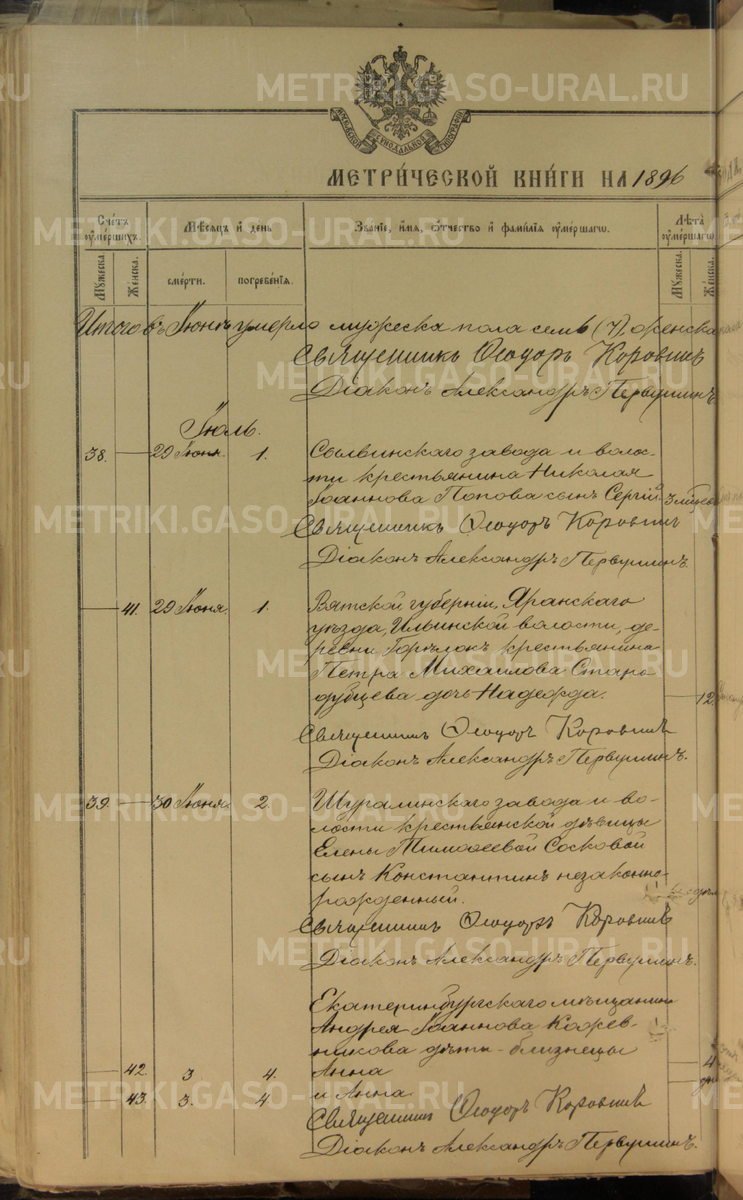 METRIKI.GASO-URAL.RU
МОСКОВСКОЙ СѴНОДАЛЬНОЙ ТИПОГРАФІИ
МЕТРИ́ЧЕСКОЙ КНИ́ГИ НА 1896
Сче́тъ ᲂу҆ме́ршихъ.
Мѣ́сяцъ и҆ де́нь
Зва́нїе, и҆́мѧ, ѻ҆́тчество и҆ фами́лїѧ ᲂу҆ме́ршагѡ.
Лѣ́та ᲂу҆ме́ршагѡ
Мꙋ́жеска. Же́нска.
сме́рти. погребе́нїѧ.
Мꙋ́жеска. Же́нска.
Итого въ Іюнѣ умерло мужеска пола семь (7), женска
Священникъ Ѳеодоръ Коровинъ
Діаконъ Александръ Первушинъ.
Іюль.
38. 29 Іюня. 1. Сылвинскаго завода и волос-
ти крестьянина Николая
Іоаннова Попова сынъ Сергій. 3 мѣсяц
Священникъ Ѳеодоръ Коровинъ
Діаконъ Александръ Первушинъ.
41. 29 Іюня. 1. Вятской губерніи, Яранскаго
уѣзда, Ильинской волости, де-
ревни крестьянина
Петра Михаилова Старо-
дубцева дочь Надежда. 12
Священникъ Ѳеодоръ Коровинъ
Діаконъ Александръ Первушинъ.
39. 30 Іюня. 2. Шуралинскаго завода и во-
лости крестьянской дѣвицы
Елены Тимоѳеевой Сосковой
сынъ Константинъ незаконно-
рожденный.
Священникъ Ѳеодоръ Коровинъ
Діаконъ Александръ Первушинъ.
Екатеринбургскаго мѣщанина
Андрея Іоаннова Кожев-
никова дѣти-близнецы
42. 3 4. Анна 4
43. 3. 4 и Анна
Священникъ Ѳеодоръ Коровинъ
Діаконъ Александръ Первушинъ.